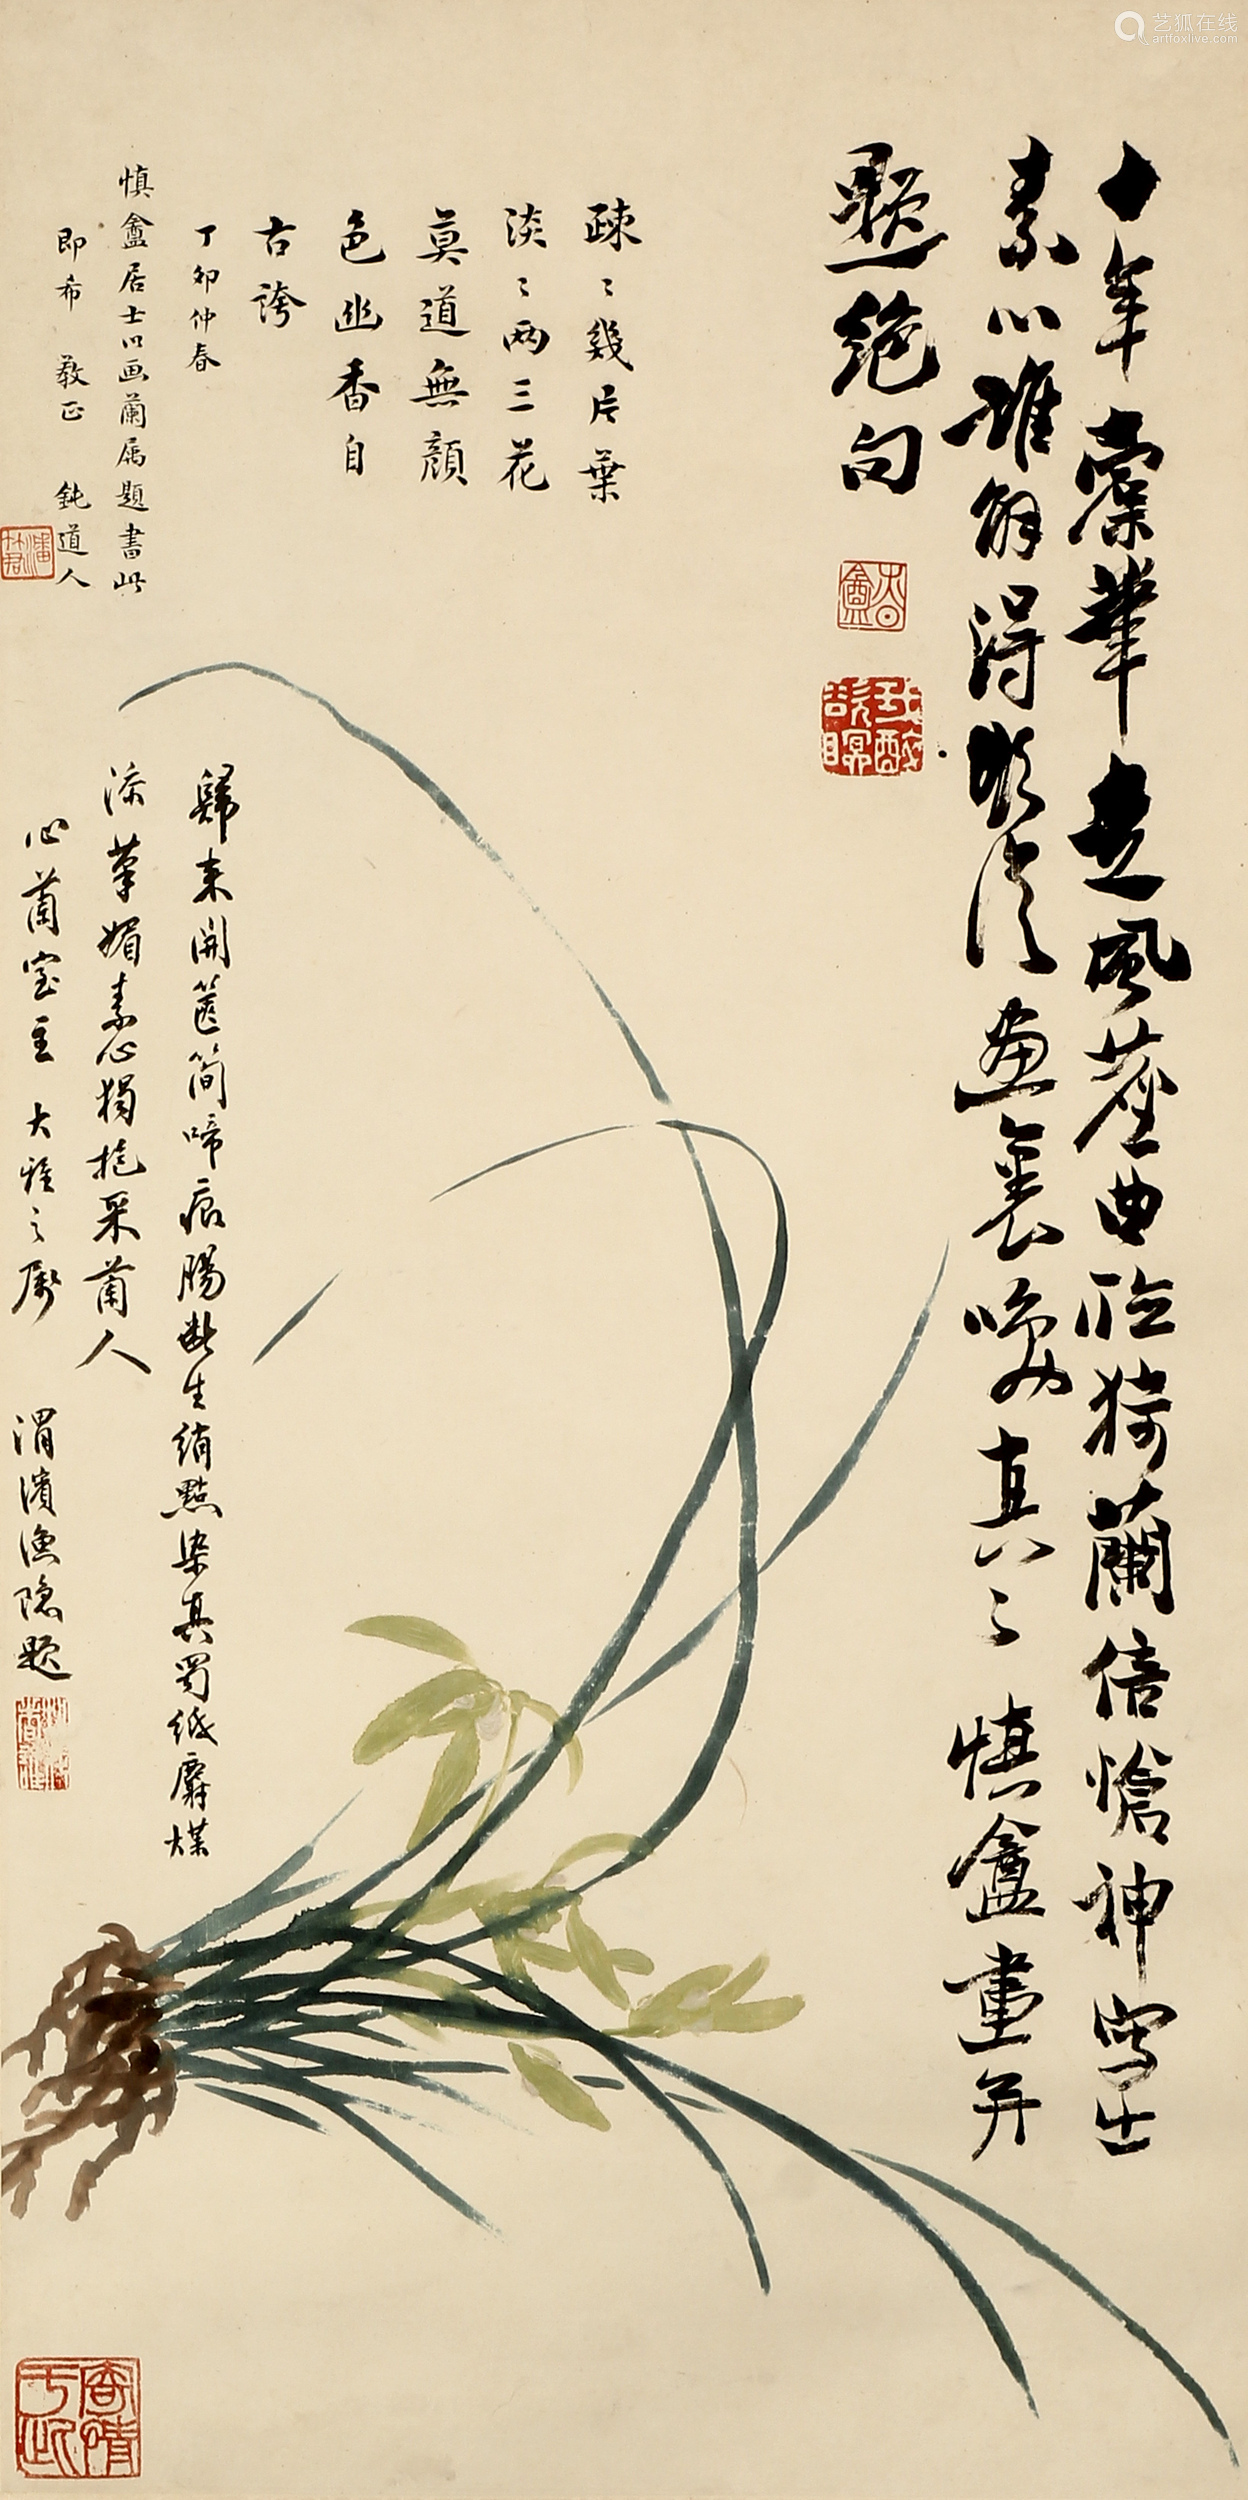 十年橐筆走風塵曲聽猗蘭倍愴神寫出
素心誰解得臨濱畫裏喚真真 慎盦畫并
題絕句
疎疎幾片葉
淡淡兩三花
莫道無顏
色幽香自
古誇
丁卯仲春
慎盦居士以画蘭属題書此
即希 教正 鈍道人
歸来開篋簡啼痕腸斷生綃點染真蜀紙麝煤
添筆媚素心獨抱采蘭人
心蘭室主大雅之属 渭濱漁隐題
艺狐在线
artfoxlive.com